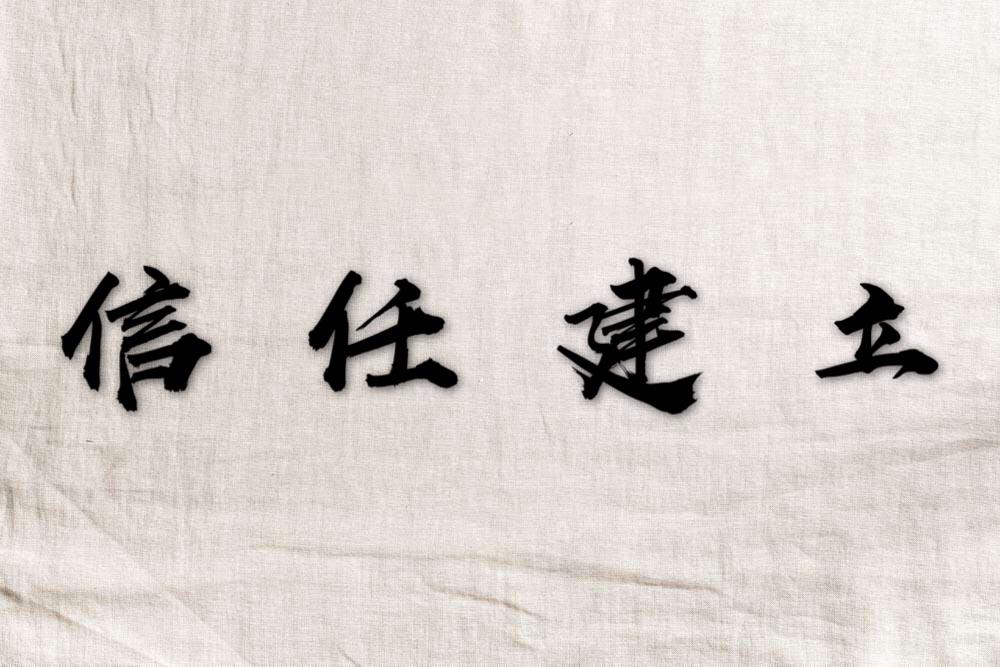 信任建立